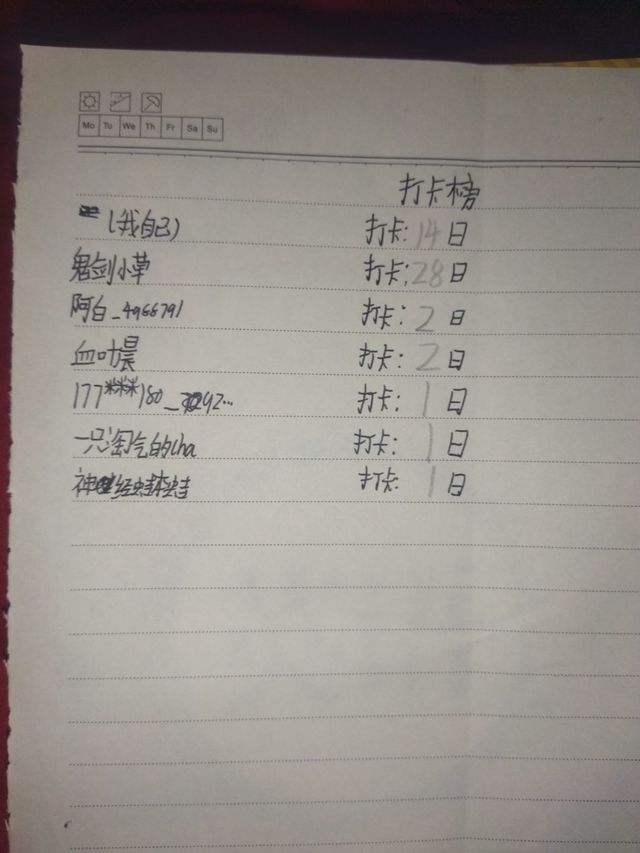 Mo Tu We Th Fr Sa Su
打卡榜
(我自己) 打卡:14日
鬼剑小草 打卡:28日
阿白_4966791 打卡:2日
血叶晨 打卡:2日
177***180_92... 打卡:1日
一只淘气的cha 打卡:1日
神经蛙蛙 打卡:1日